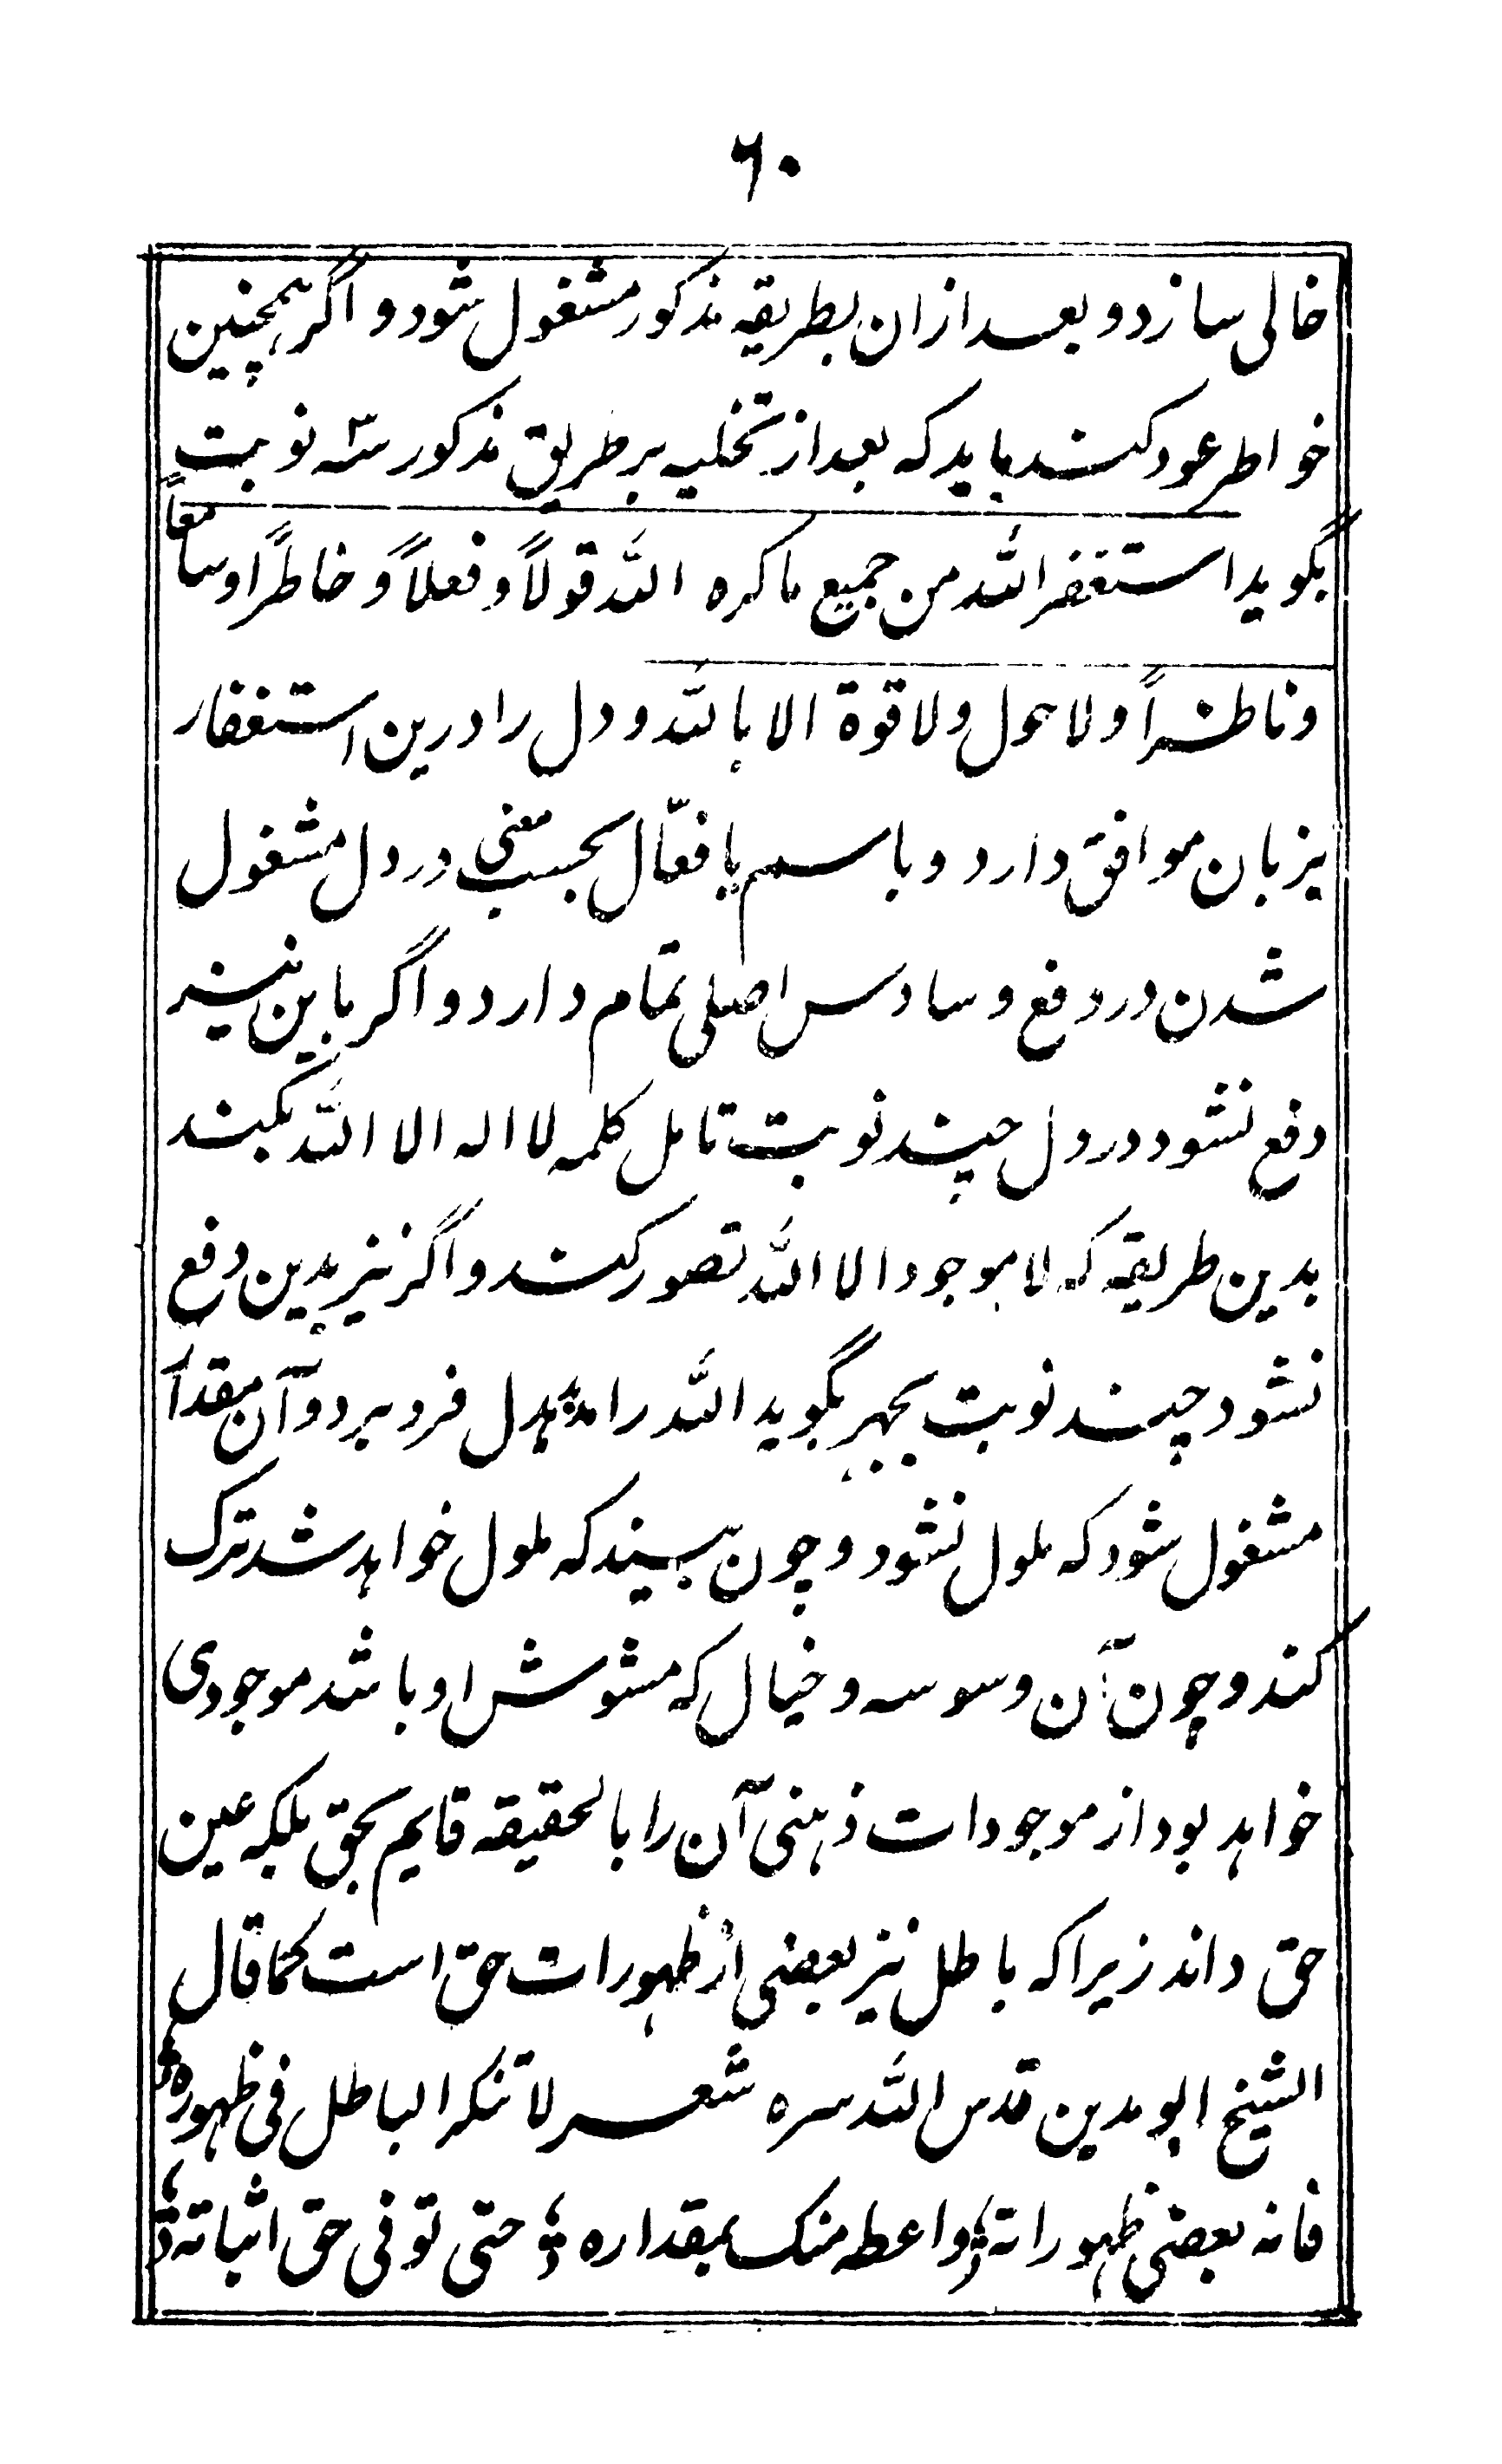 ۶۰
خالی سازد و بعد ازان بطریقه مذکور مشغول شود و اگر همچنین
خواطر عود کند باید که بعد از تخلیه بر طریق مذکور سه نوبت
بگوید استغفر الله من جمیع ما کره الله قولاً و فعلاً و خاطراً و سامعاً
و ناظراً و لا حول و لا قوة الا بالله و دل را درین استغفار
بزبان موافق دارد و باسم یا فعّال بحسب معنی در دل مشغول
شدن در دفع وساوس اصلی تمام دارد و اگر باین نیز
دفع نشود در دل چند نوبت تامل کلمه لا اله الا الله بکند
بدین طریقه که لا موجود الا الله تصور کند و اگر نیز بدین دفع
نشود چند نوبت بجهر بگوید الله را مد بدل فرو برد و آن مقدار
مشغول شود که ملول نشود و چون ببیند که ملول خواهد شد ترک
کند و چون آن وسوسه و خیال که مشوش او باشد موجودی
خواهد بود از موجودات ذهنی آن را بالحقیقه قایم بحق بلکه عین
حق داند زیرا که باطل نیز بعضی از ظهورات حق است کما قال
الشیخ ابو مدین قدس الله سره شعر لا تنکر الباطل فی ظهوره
فانه بعضی ظهوراته واعطه منک بمقداره حتی توفی حق اثباته